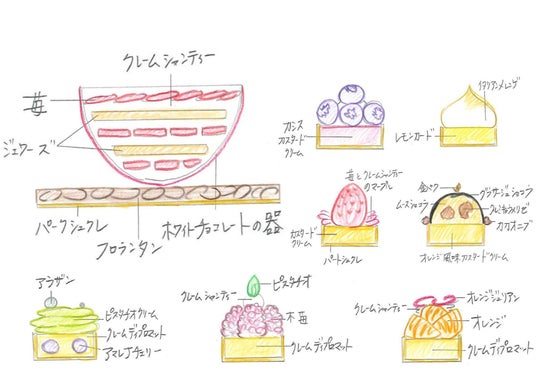 クレームシャンティー
苺
ジェノワーズ
パートシュクレ
フロランタン
ホワイトチョコレートの器
カシス
カスタード
クリーム
レモンカード
イタリアンメレンゲ
苺とクレームシャンティー
のマーブル
カスタード
クリーム
パートシュクレ
金ぱく
グラサージュショコラ
ムースショコラ
カカオニブ
オレンジ風味カスタードクリーム
アラザン
ピスタチオクリーム
クレームディプロマット
アマレナチェリー
ピスタチオ
クレームシャンティー
木苺
クレームディプロマット
クレームシャンティー
オレンジジュリアン
オレンジ
クレームディプロマット